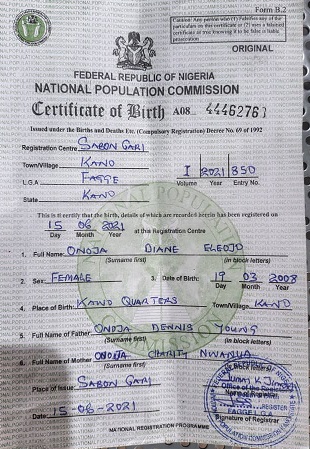 Form B.2
Caution: Any person who (1) Falsifies any of the
particulars on this certificate or (2) uses a falsified
certificate as true knowing it to be false is liable
prosecution
ORIGINAL
FEDERAL REPUBLIC OF NIGERIA
NATIONAL POPULATION COMMISSION
Certificate of Birth A08 44462761
Issued under the Births and Deaths Etc. (Compulsory Registration) Decree No. 69 of 1992
Registration Centre SABON GARI
Town/Village KANO
L.G.A FAGGE
State KANO
I 2021 850
Volume Year Entry No.
This is to certify that the birth, details of which are recorded herein has been registered on
15 06 2021 at this Registration Centre
Day Month Year
1. Full Name: ONOJA DIANE ELEOJO
(Surname first) (in block letters)
2. Sex: FEMALE 3. Date of Birth: 19 03 2008
Day Month Year
4. Place of Birth: KANO QUARTERS Town/Village KANO
5. Full Name of Father ONOJA DENNIS YOUNG
(Surname first) (in block letters)
6. Full Name of Mother ONOJA CHARITY
(Surname first) (in block letters)
Place of Issue: SABON GARI
Date: 15-06-2021
Signature of Registrar
NATIONAL REGISTRATION PROGRAMME